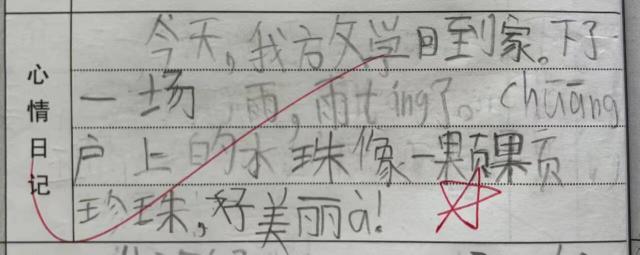 心情日记
今天,我方文学日到家。下了
一场雨,雨tíng了。chūāng
户上的水珠像一颗果页
珍珠,好美丽à!